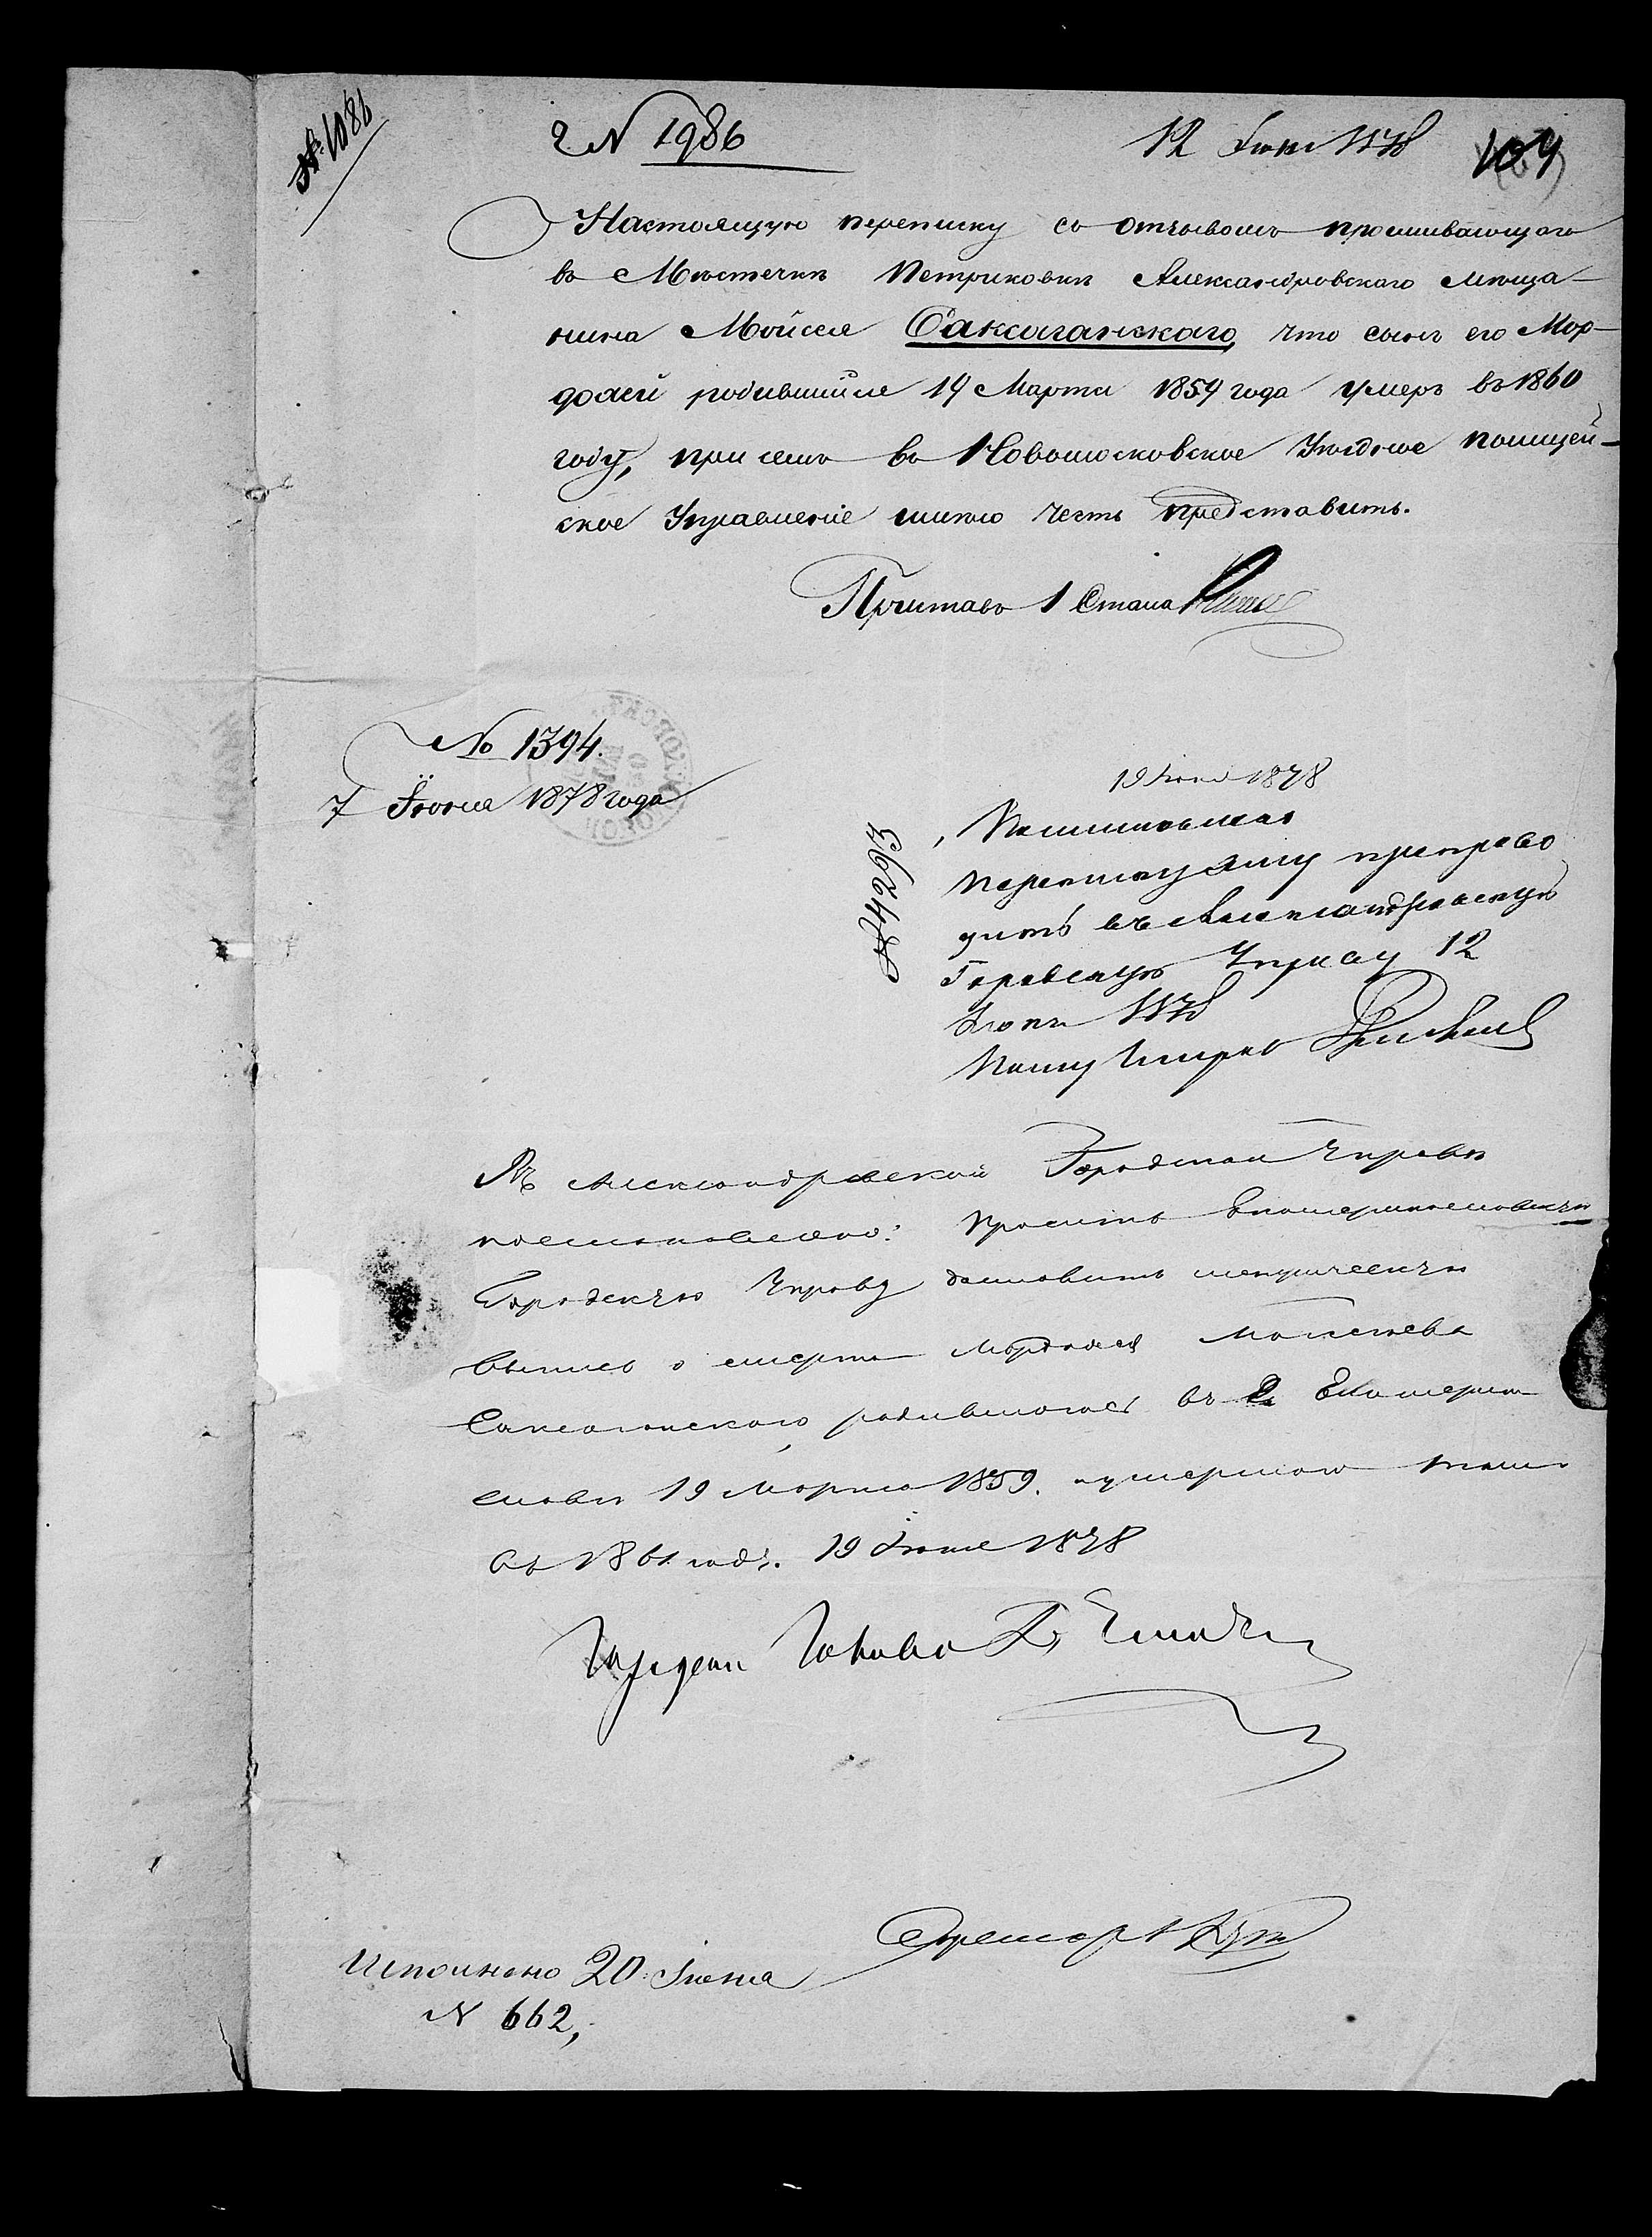 № 1086
№ 1986
12 Іюня 1878
104
Настоящую переписку съ отзывомъ проживающаго
въ Мѣстечкѣ Петриковкѣ Александровскаго мѣща-
нина Мойсея Саксаганскаго, что сынъ его Мор-
дохей родившійся 19 Марта 1859 года умеръ въ 1860
году, при семъ въ Новомосковское Уѣздное Полицей-
ское Управленіе имѣю честь представить.
Приставъ 1 Стана
№ 1394.
7 Іюня 1878 года
19 Іюня 1878
№ 4293
переписку препрово
дить въ Александровскую
Городскую Управу 12
Іюня 1878
Въ Александровской Городской Управѣ
постановлено: Просить Екатеринославскую
Городскую Управу доставить метрическую
выпись о смерти Мордохея Мойсеева
Саксаганскаго, родившагося въ Екатерино
славѣ 19 Марта 1859. и умершаго тамъ
въ 1861 году. 19 Іюня 1878
Городской Голова
Секретарь
Исполнено 20 Іюня
№ 662,